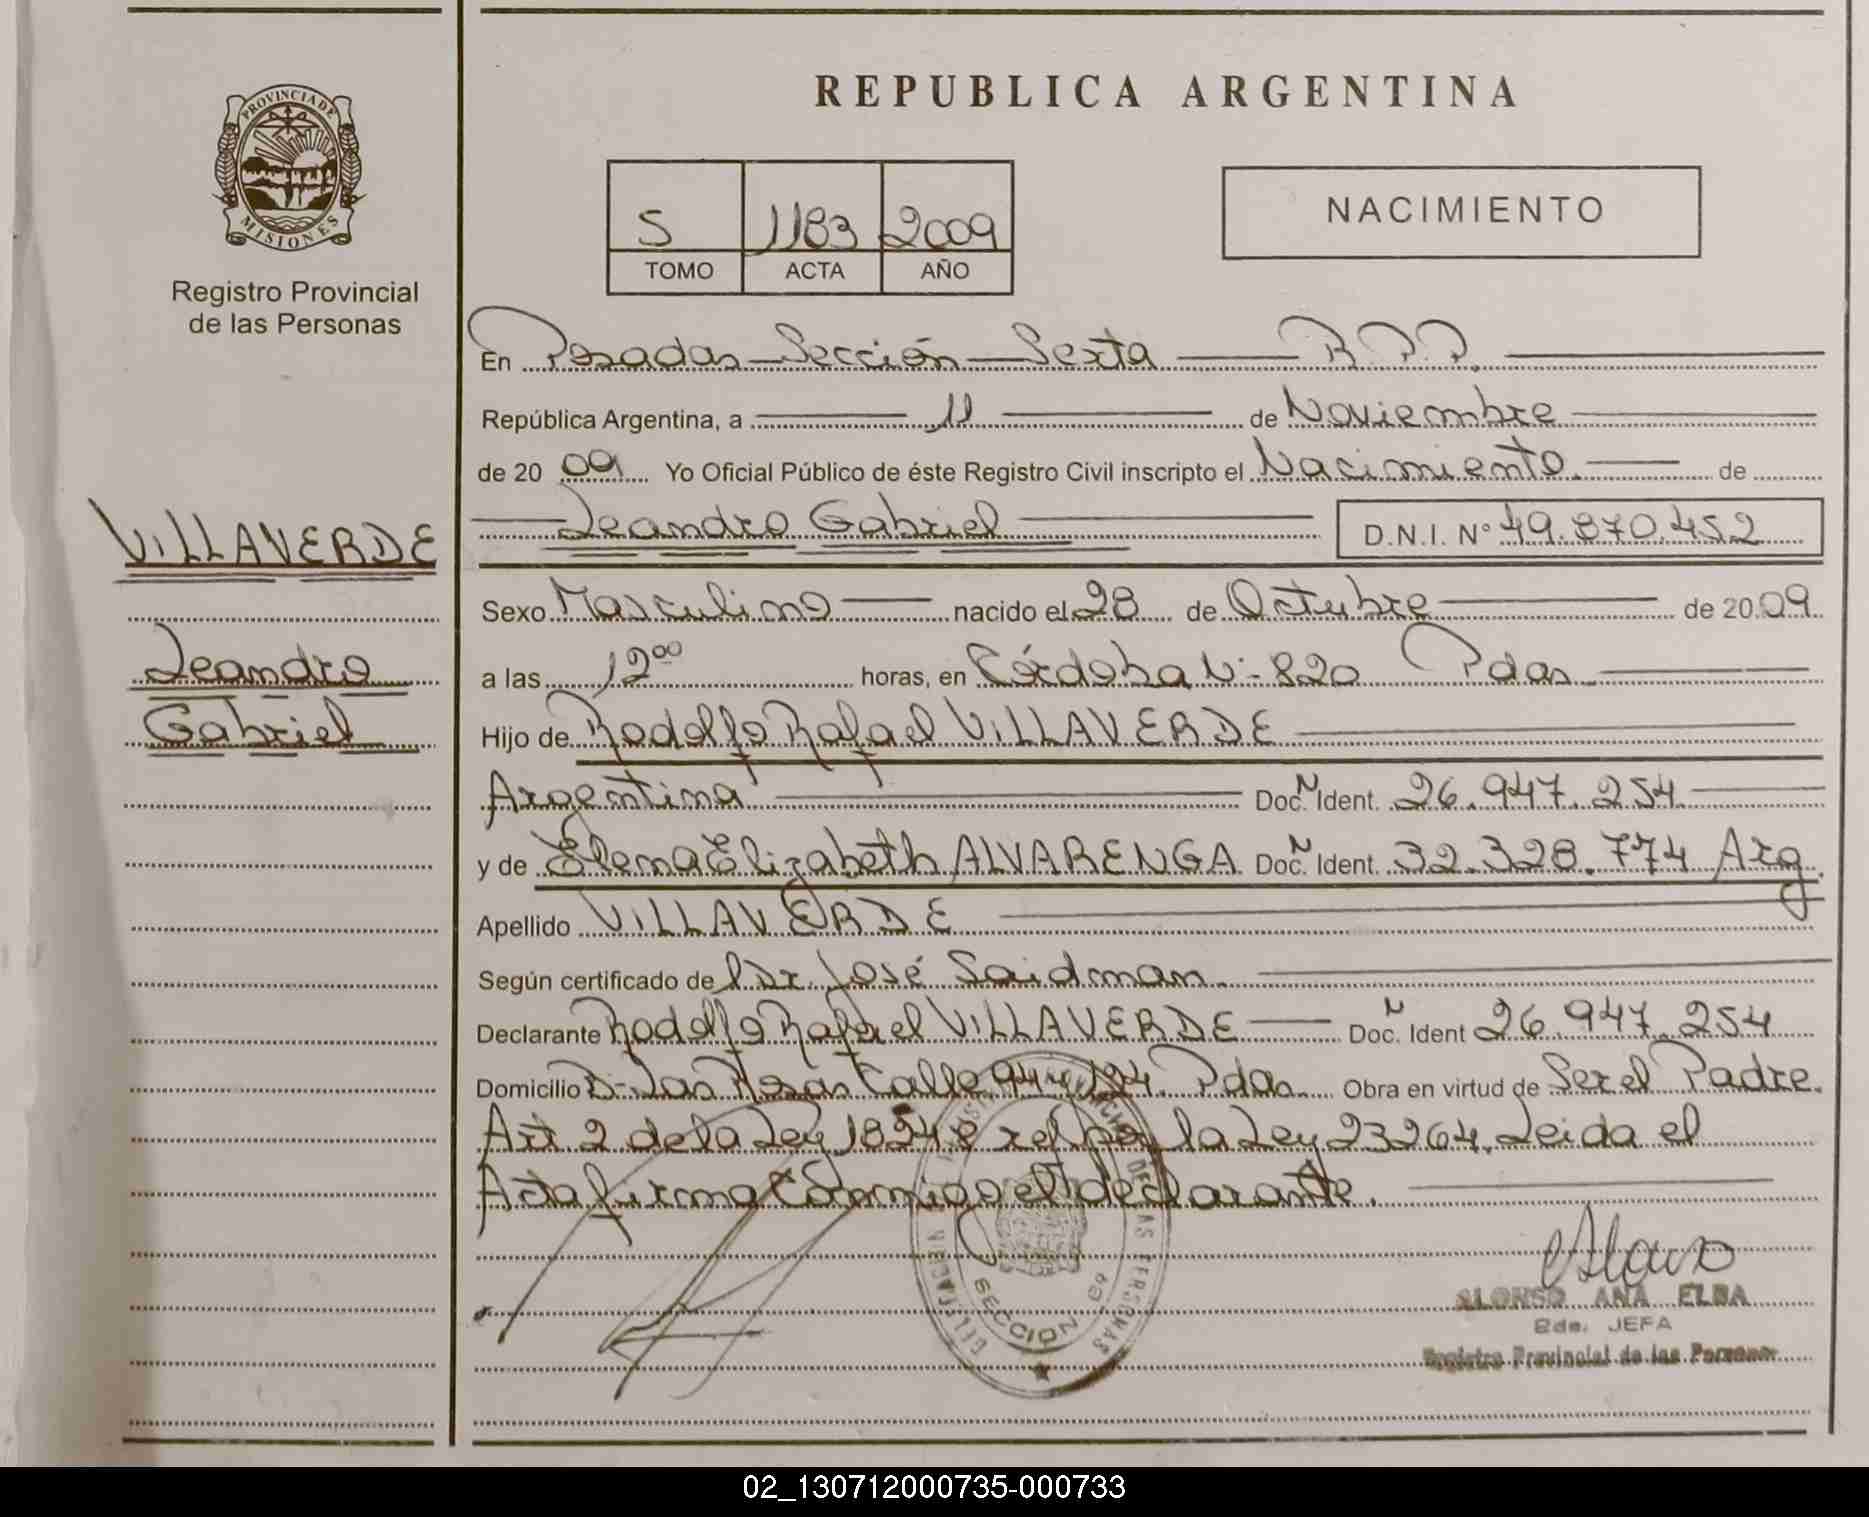 PROVINCIA DE
MISIONES
Registro Provincial
de las Personas
VILLAVERDE
Leandro
Gabriel
REPUBLICA ARGENTINA
5 1183 2009
TOMO ACTA AÑO
NACIMIENTO
En Posadas Sección Sexta R.P.P.
República Argentina, a 11 de Noviembre
de 20 09 Yo Oficial Público de éste Registro Civil inscripto el Nacimiento. de
Leandro Gabriel D.N.I. N° 49.870.452
Sexo Masculino nacido el 28 de Octubre de 20 09
a las 12 00 horas, en Córdoba N- 820 Pdas.
Hijo de Rodolfo Rafael VILLAVERDE
Argentina Doc. N Ident. 26.947.254
y de Elena Elizabeth ALVARENGA Doc. N Ident. 32.328.774 Arg.
Apellido VILLAVERDE
Según certificado de l Dr. José Saidman.
Declarante Rodolfo Rafael VILLAVERDE Doc. N Ident 26.947.254
Domicilio B- Las Rosas Calle 94 N- 124. Pdas. Obra en virtud de Ser el Padre.
Art. 2 de la Ley 18248 ref por la Ley 23264. Leida el
Acta firma Conmigo el declarante.
DE LAS PERSONAS
SECCION
ALONSO ANA ELBA
2da. JEFA
Registro Provincial de las Personas
02_130712000735-000733